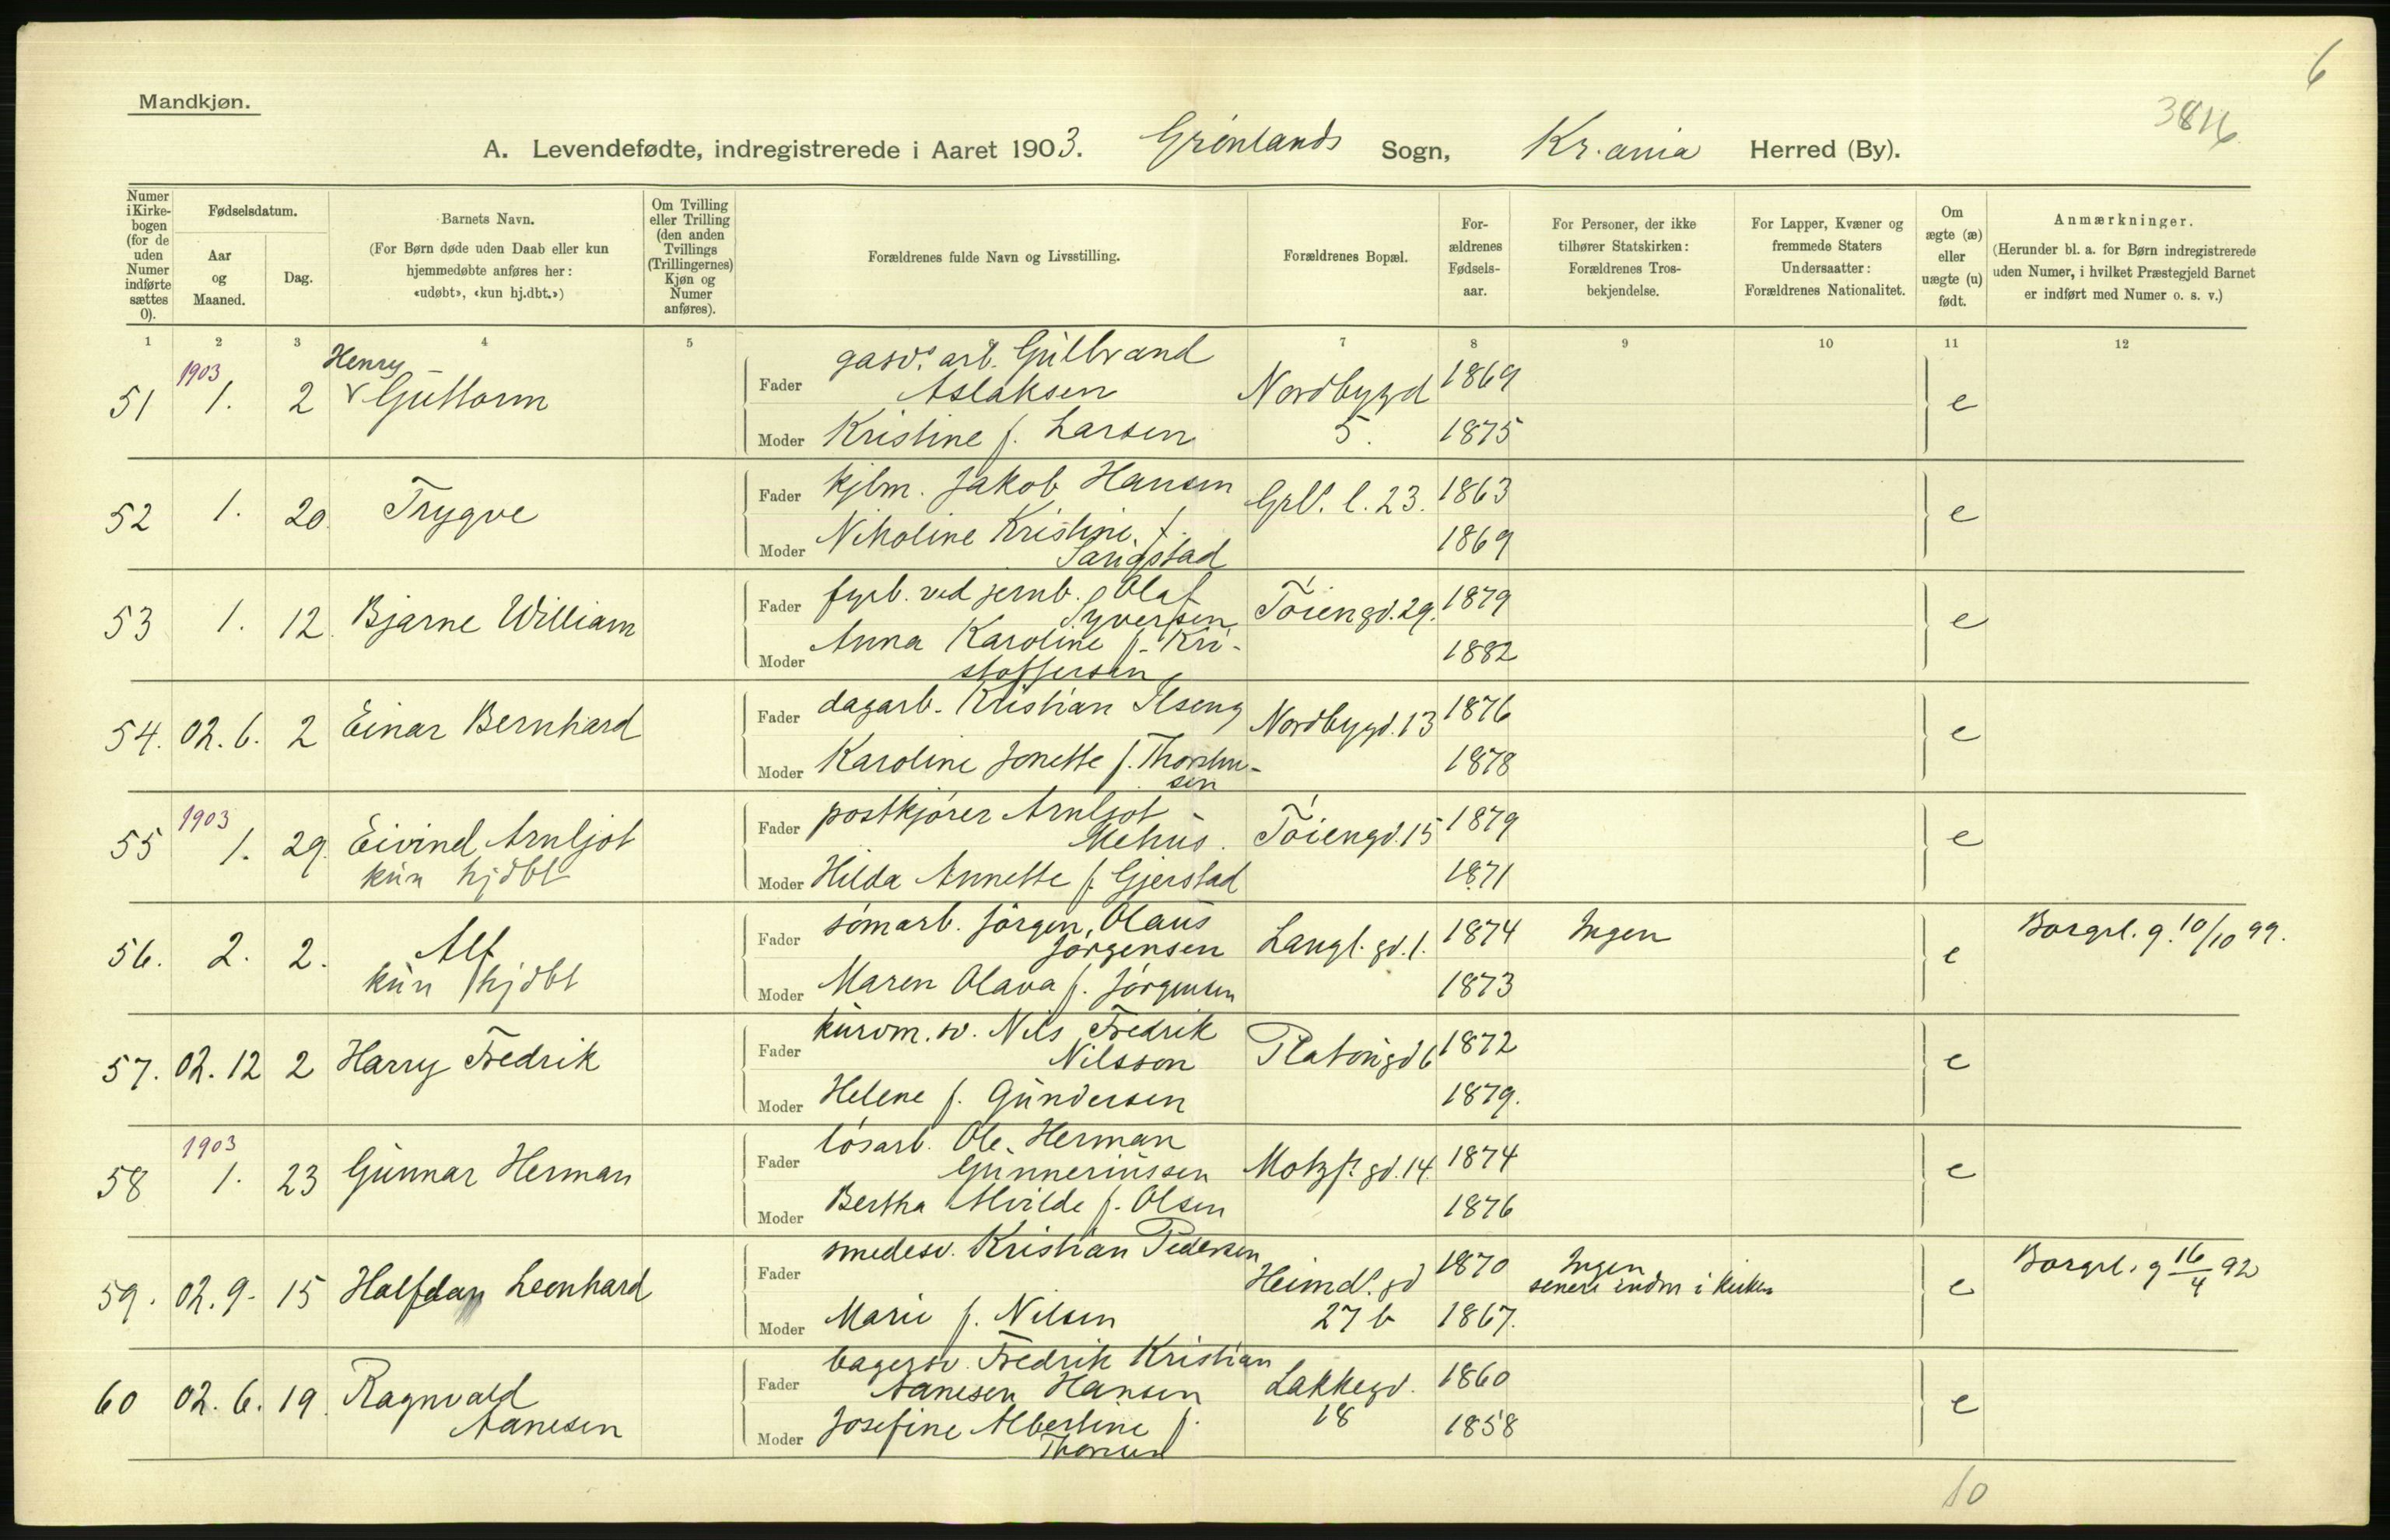 6
Mandkjøn.
A. Levendefødte, indregistrerede i Aaret 1903. Grønlands Sogn, Kr.ania Herred (By).
Numer i Kirkebogen (for de uden Numer indførte sættes 0).
Fødselsdatum.
Aar og Maaned.
Dag.
Barnets Navn.
(For Børn døde uden Daab eller kun hjemmedøbte anføres her: «udøbt», «kun hj.dbt.»)
Om Tvilling eller Trilling (den anden Tvillings (Trillingernes) Kjøn og Numer anføres).
Forældrenes fulde Navn og Livsstilling.
Forældrenes Bopæl.
Forældrenes Fødselsaar.
For Personer, der ikke tilhører Statskirken: Forældrenes Trosbekjendelse.
For Lapper, Kvæner og fremmede Staters Undersaatter: Forældrenes Nationalitet.
Om ægte (æ) eller uægte (u) født.
Anmærkninger.
(Herunder bl. a. for Børn indregistrerede uden Numer, i hvilket Præstegjeld Barnet er indført med Numer o. s. v.)
1 2 3 4 5 7 8 9 10 11 12
51 1903 1. 2 Henry Guttorm
Fader gasv. arb. Gulbrand Aslaksen Nordbygd 5. 1869 e
Moder Kristine f. Larsen 1875
52 1. 20. Trygve
Fader kjlm. Jakob Hansen Grl. l. 23. 1863 e
Moder Nikoline Kristine f. 1869
53 1. 12. Bjarne William
Fader fyrb. ved jernb. Olaf Syversen Tøiengd. 29. 1879 e
Moder Anna Karoline f. Kristoffersen 1882
54. 02. 6. 2 Einar Bernhard
Fader dagarb. Kristian Ilseng Nordbygd. 13 1876 e
Moder Karoline Jonette f. 1878
55 1903 1. 29. Eivind Arnljot
kun hjdbt
Fader postkjører Arnljot Mehus. Tøiengd. 15 1879 e
Moder Hilda Annette f. Gjerstad 1871
56. 2. 2. Alf
kun hjdbt
Fader sømarb. Jørgen Olaus Jørgensen Langl. gd. 1. 1874 Ingen e Borgel. g. 10/10 99.
Moder Maren Olava f. Jørgensen 1873
57. 02. 12 2 Harry Fredrik
Fader kurvm. sv. Nils Fredrik Nilsson Platougd 6 1872 e
Moder Helene f. Gundersen 1879.
58 1903 1. 23 Gunnar Herman
Fader løsarb. Ole Herman Gunneriussen Motzf. gd. 14. 1874 e
Moder Bertha Alvilde f. Olsen 1876
59. 02. 9. 15 Halfdan Leonhard
Fader smedesv. Kristian Pedersen Heimd. gd 27 b 1870 Ingen
senere indm i kirken e Borgel. g 16/4 92
Moder Marie f. Nilsen 1867.
60 02. 6. 19. Ragnvald Aanesen
Fader bagersv. Fredrik Kristian Aanesen Hansen Lakkegd. 18 1860 e
Moder Josefine Albertine f. 1858
10